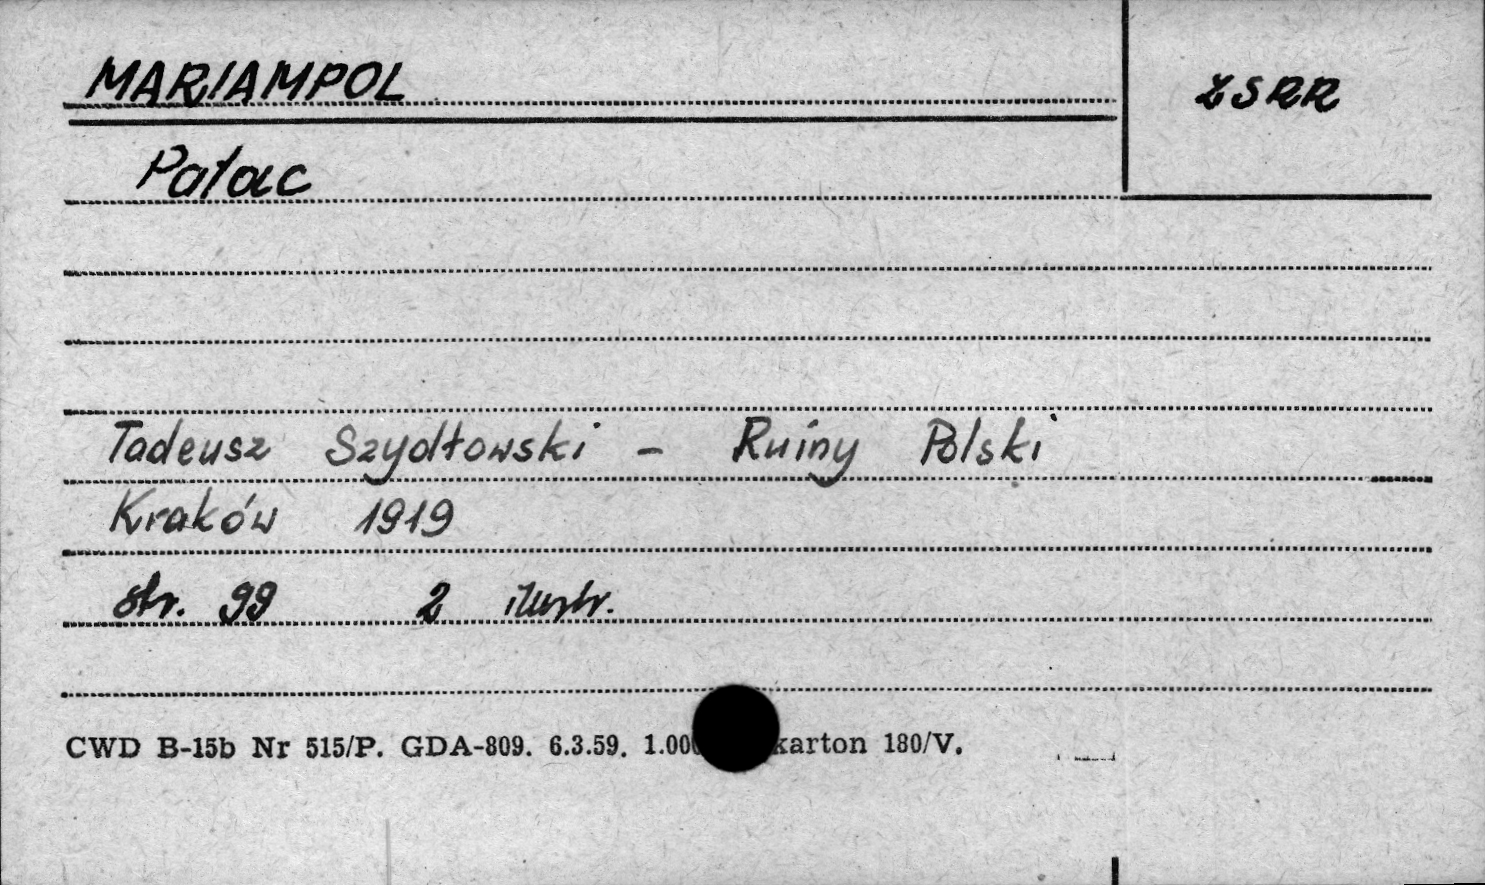 MARIAMPOL
ZSRR
Pałac
Tadeusz Szydłowski - Ruiny Polski
Kraków 1919
str. 99 2 ilustr.
CWD B-15b Nr 515/P. GDA-809. 6.3.59. karton 180/V.